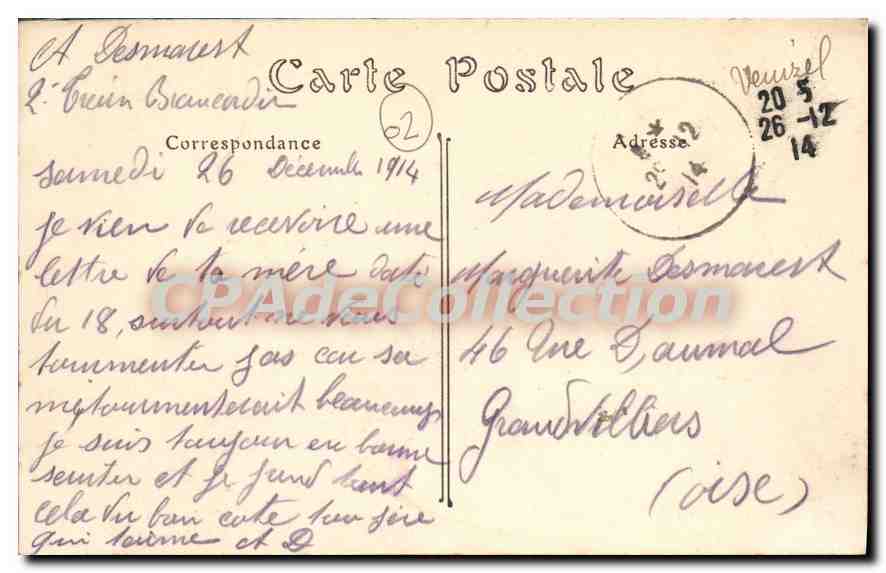 A Desmarest
2e Train Brancardier
Carte Postale
Venizel
20 5
26 -12
14
02
Correspondance
Adresse
26 12
14
samedi 26 Décembre 1914
je vien de recevoire une
lettre de ta mère daté
du 18, surtout ne vous
tourmenter pas car sa
me tourmenterait beaucoup
je suis toujour en bonne
senter et je prend tout
cela du bon cote ton père
qui t'aime A D
Mademoiselle
Marguerite Desmarest
46 Rue D'aumal
Grandvilliers
(oise)
CPAdeCollection